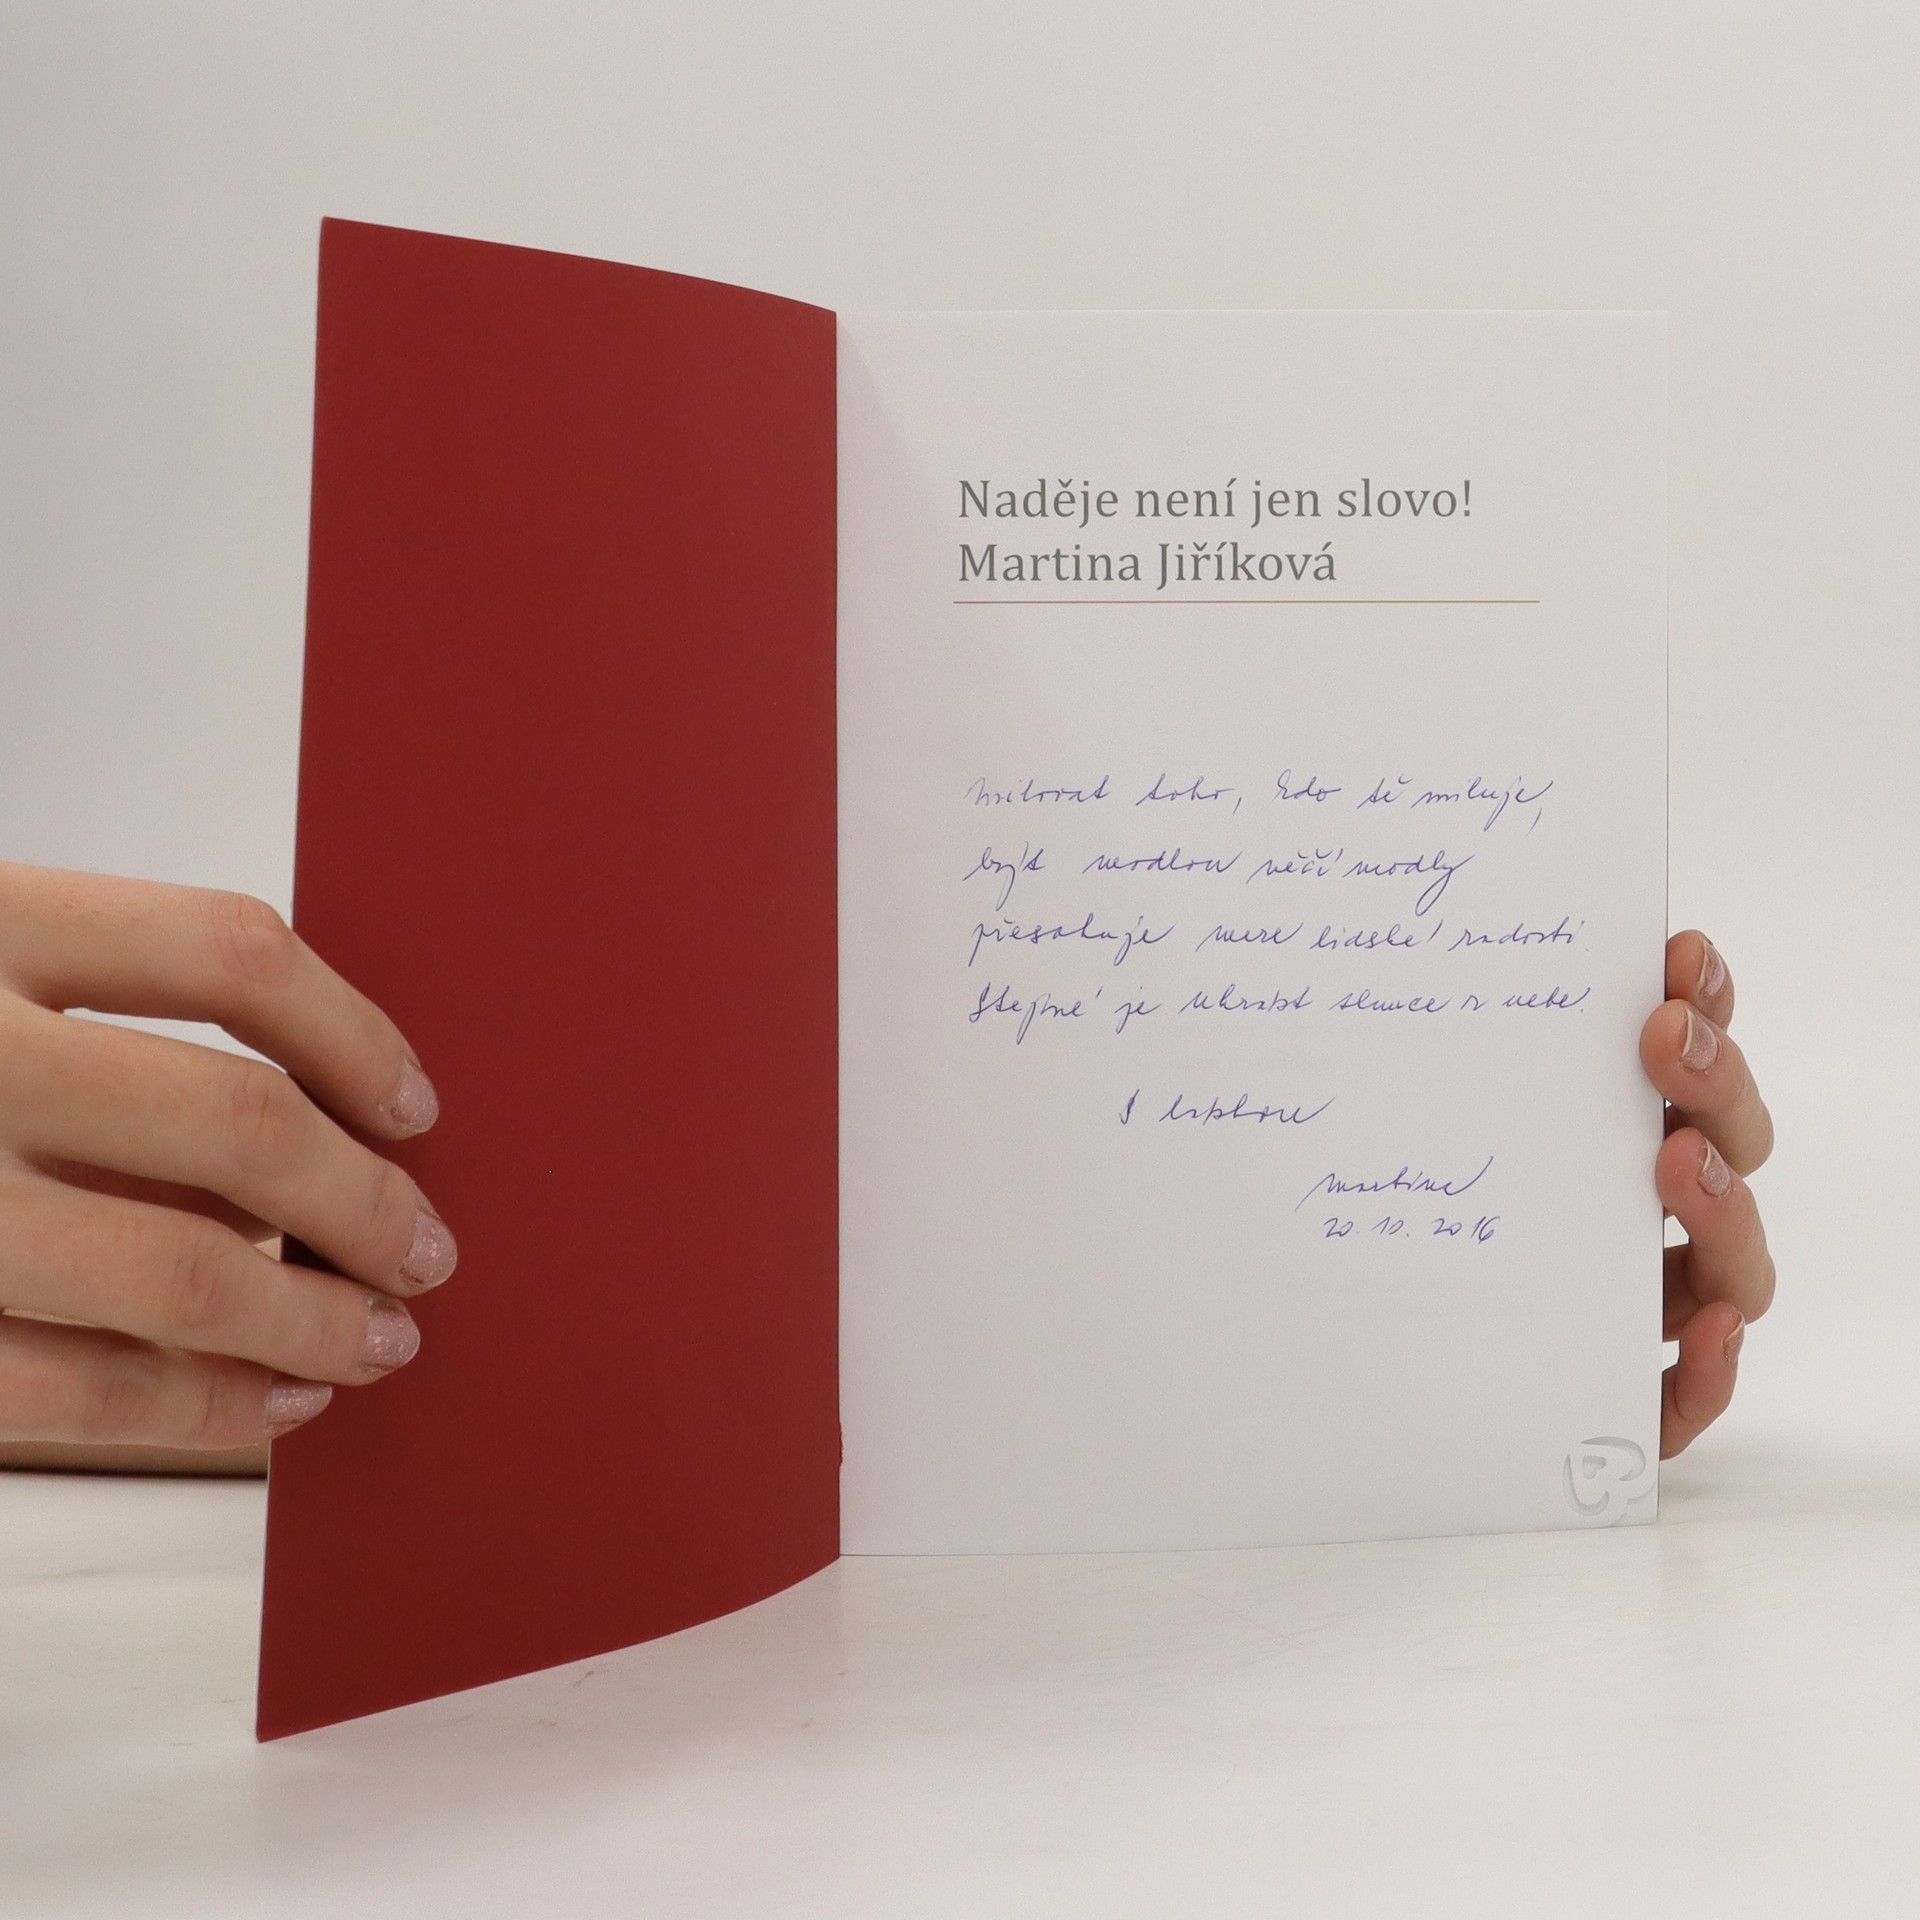 Naděje není jen slovo!
Martina Jiříková
Milovat toho, kdo tě miluje,
být modlou něčí modly
přesahuje meze lidské radosti.
Stejné je ukrást slunce z nebe.
S láskou
Martina
20. 10. 2016